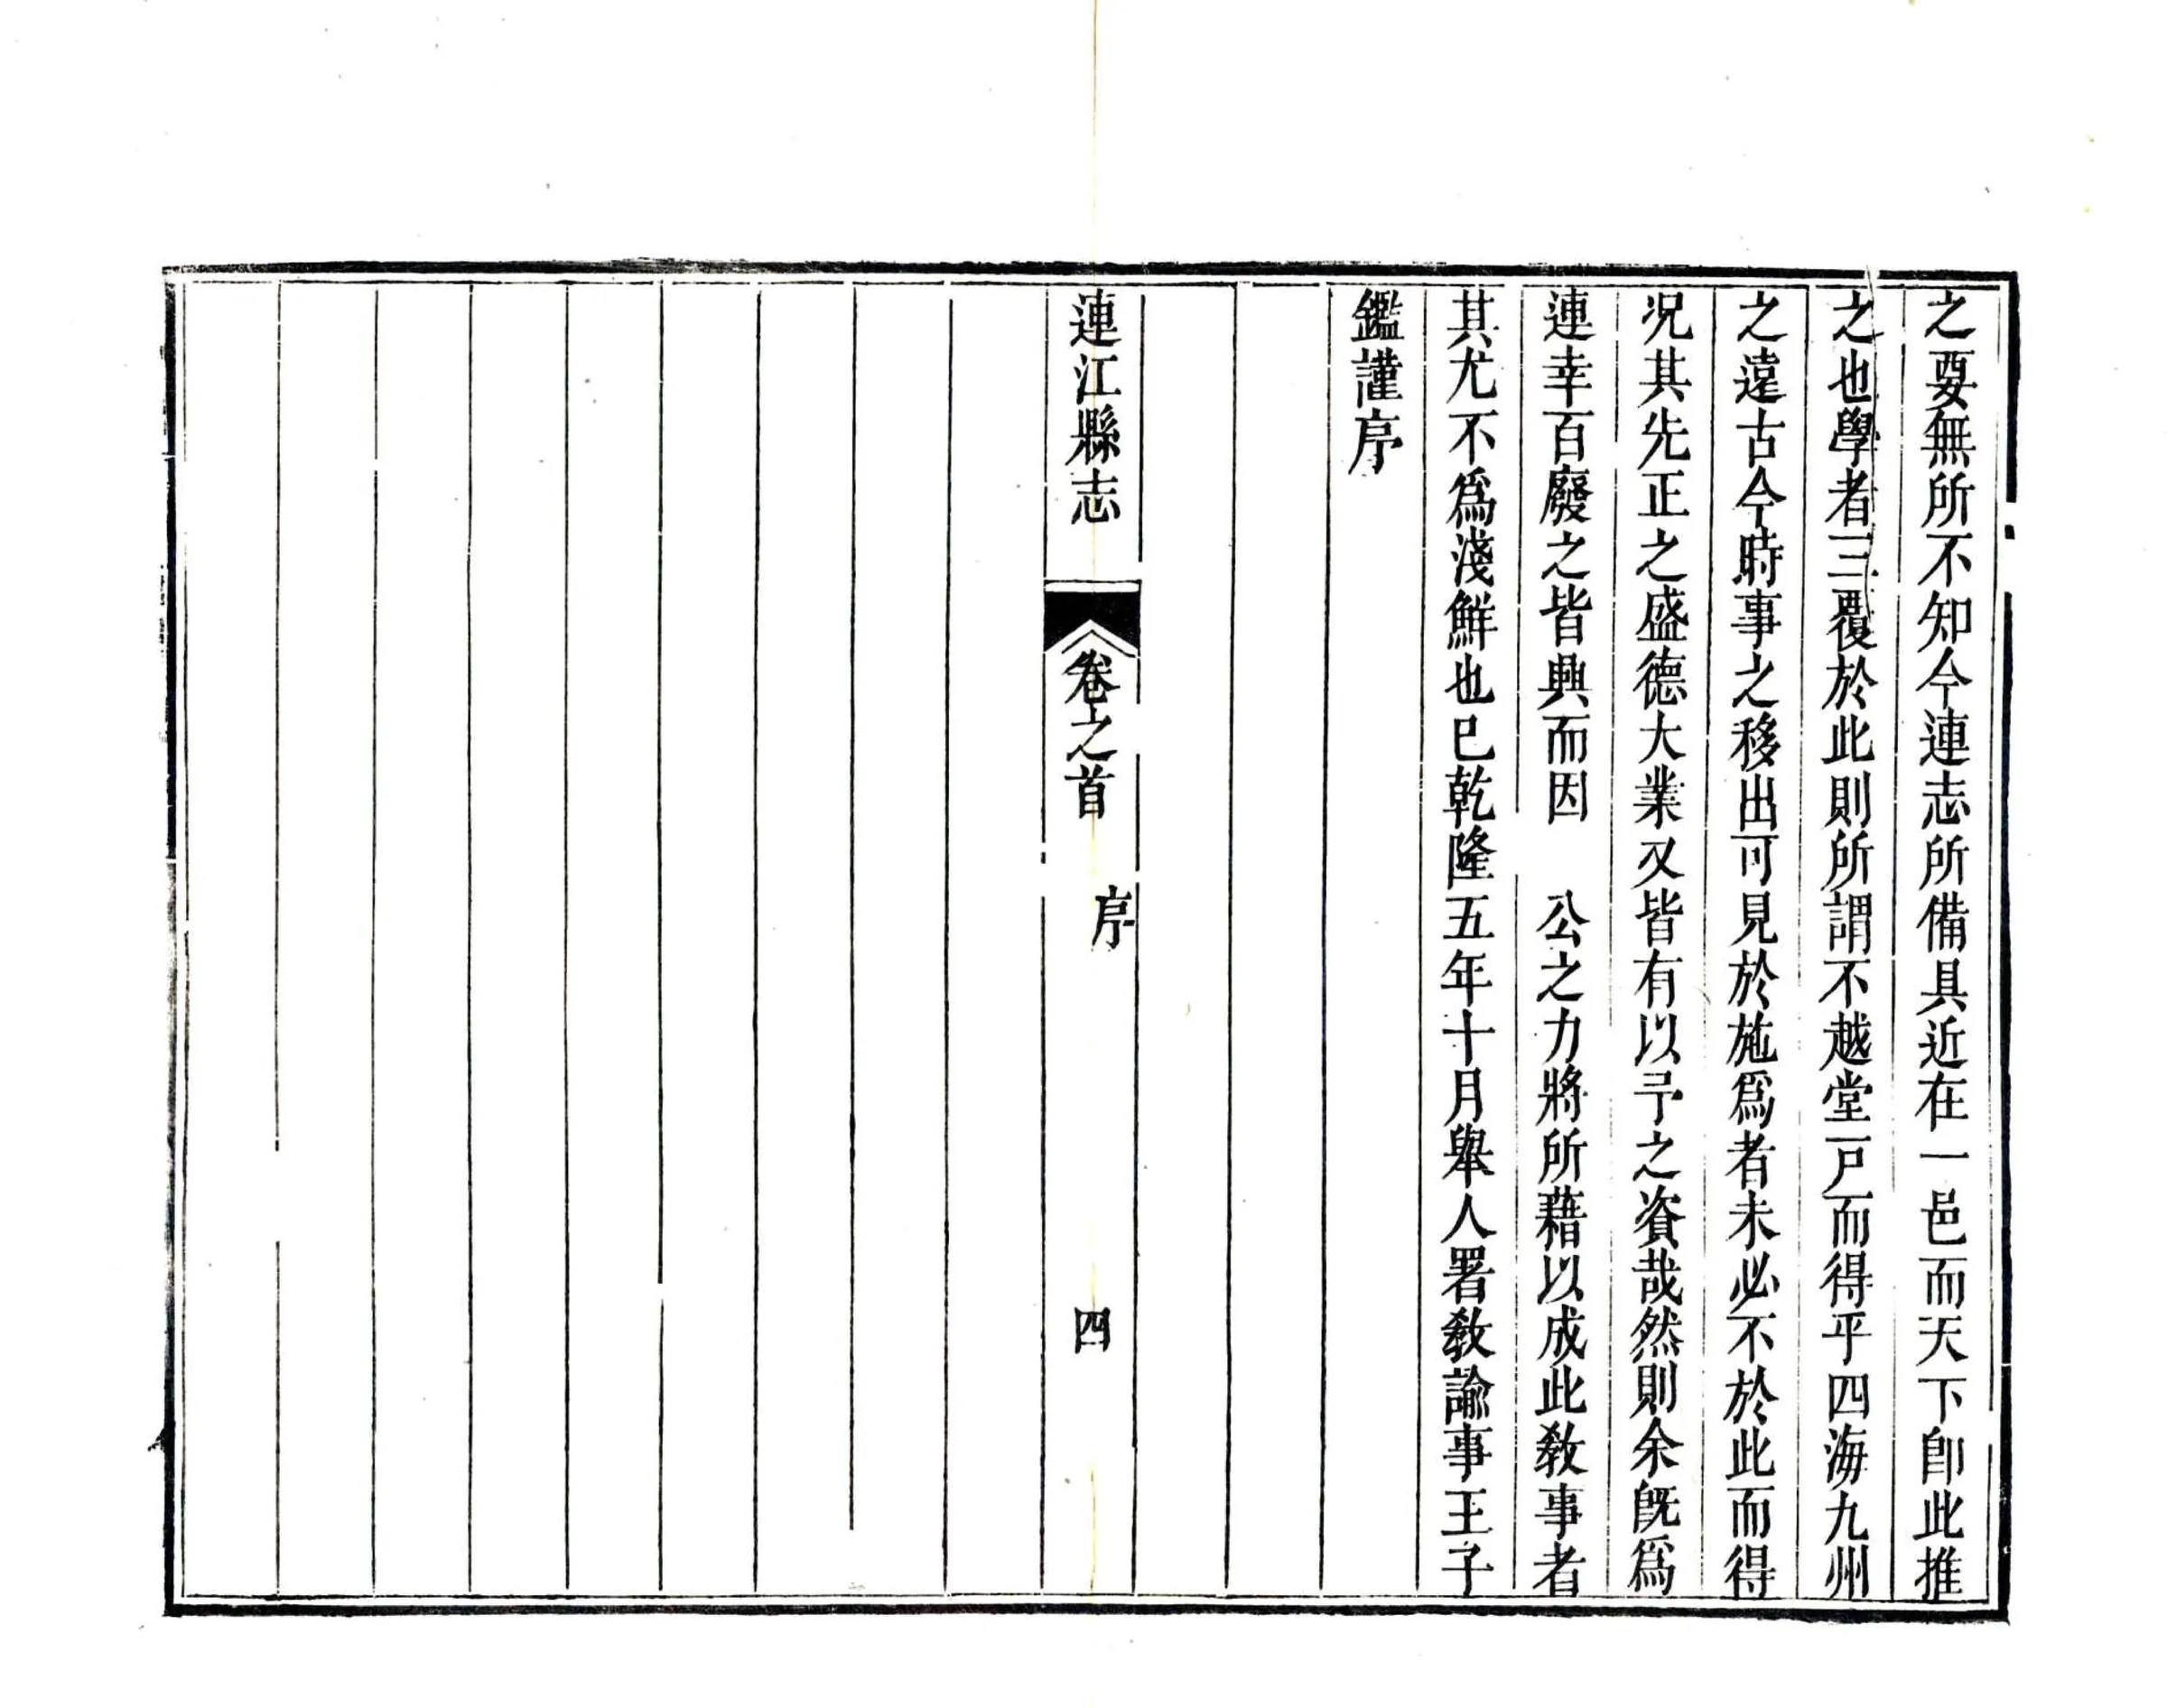 之要無所不知今連志所備具近在一邑而天下卽此推
之也學者三覆於此則所謂不越堂戸而得乎四海九州
之遠古今時事之移出可見於施爲者未必不於此而得
况其先正之盛德大業又皆有以予之資哉然則余旣爲
連幸百廢之皆興而因　公之力將所藉以成此敎事者
其尤不爲淺鮮也已乾隆五年十月舉人署敎諭事王子
鑑謹序
連江縣志　卷之首　序　四